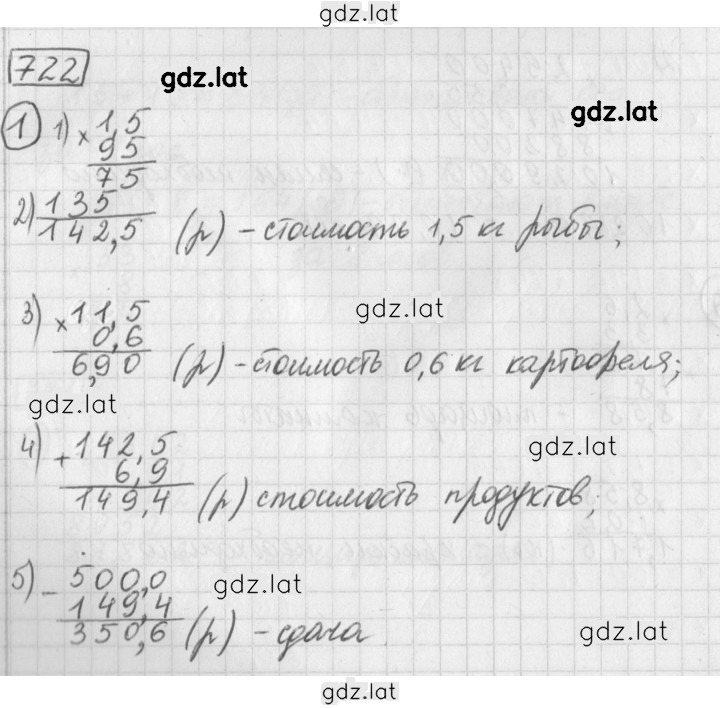 gdz.lat
722
gdz.lat
gdz.lat
1 1) × 1,5
95
75
2) 135
142,5 (р) – стоимость 1,5 кг рыбы;
3) × 11,5
gdz.lat
0,6
6,90 (р) – стоимость 0,6 кг картофеля;
gdz.lat
4) + 142,5
gdz.lat
6,9
149,4 (р) стоимость продуктов;
5) – 500,0
gdz.lat
149,4
350,6 (р) – сдача
gdz.lat
gdz.lat